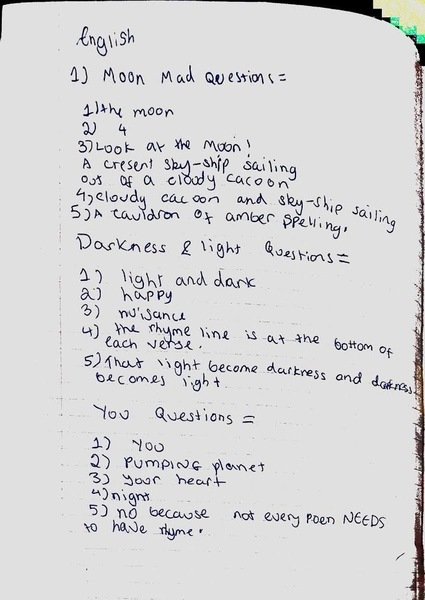 English
1) Moon Mad Questions=
1) the moon
2) 4
3) Look at the Moon!
A cresent sky-ship sailing
out of a cloudy cacoon
4) cloudy cacoon and sky-ship sailing
5) A cauldron of amber spelling.
Darkness & light Questions=
1) light and dark
2) happy
3) nuisance
4) the rhyme line is at the bottom of
each verse.
5) That light become darkness and darkness
becomes light
You Questions =
1) YOU
2) PUMPING planet
3) your heart
4) night
5) no because not every poen NEEDS
to have rhyme.